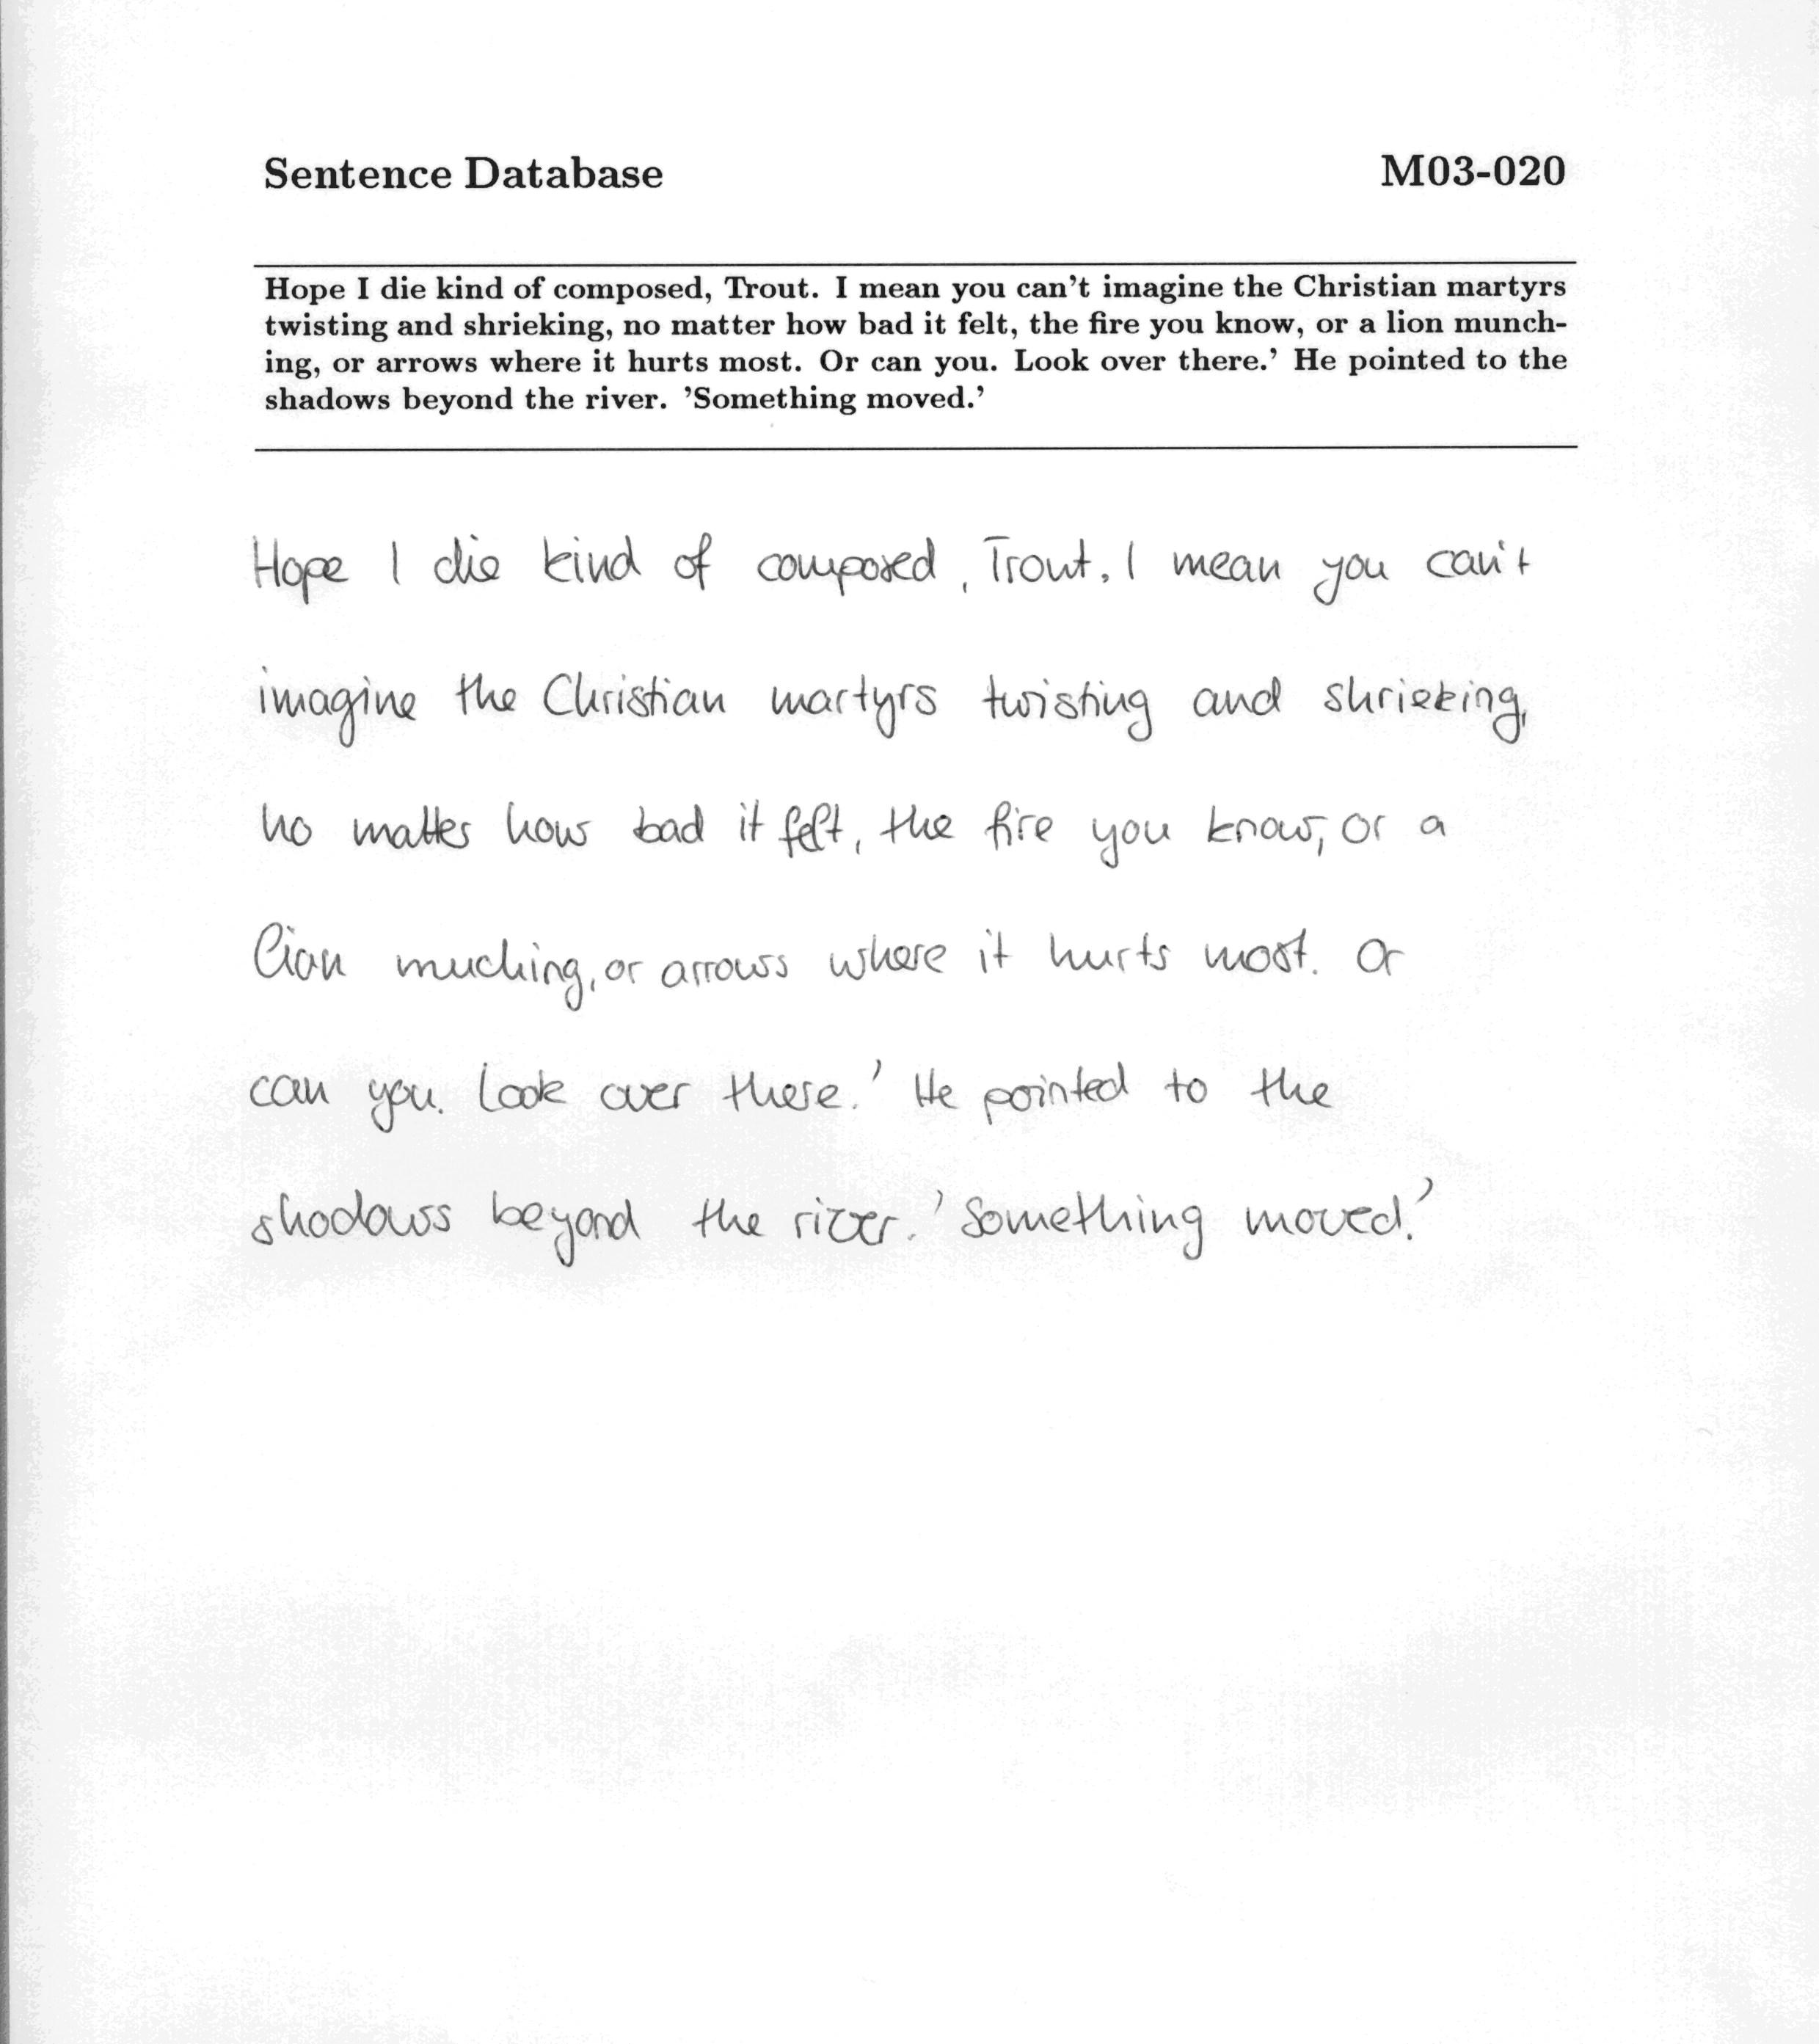 Sentence Database M03-020
Hope I die kind of composed, Trout. I mean you can't imagine the Christian martyrs
twisting and shrieking, no matter how bad it felt, the fire you know, or a lion munch-
ing, or arrows where it hurts most. Or can you. Look over there.' He pointed to the
shadows beyond the river. 'Something moved.'
Hope I die kind of composed, Trout. I mean you can't
imagine the Christian martyrs twisting and shrieking,
no matter how bad it felt, the fire you know, or a
lion muching, or arrows where it hurts most. Or
can you. Look over there.' He pointed to the
shadows beyond the river. 'Something moved.'